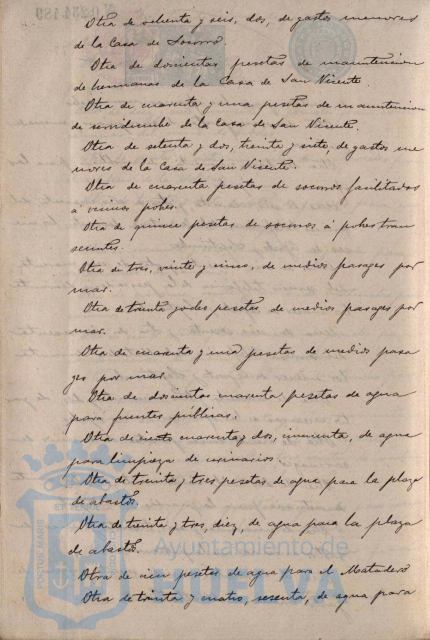 Otra de setenta y seis, dos, de gastos menores
de la Casa de Socorro.
Otra de doscientas pesetas de manutencion
de hermanas de la Casa de San Vicente.
Otra de cuarenta y una pesetas de manutencion
de servidumbre de la Casa de San Vicente.
Otra de setenta y dos, treinta y siete, de gastos me
nores de la Casa de San Vicente.
Otra de cuarenta pesetas de socorros facilitados
á vecinos pobres.
Otra de quince pesetas de socorros á pobres tran
seuntes.
Otra de tres, veinte y cinco, de medios pasages por
mar.
Otra de treinta y dos pesetas de medios pasages por
mar.
Otra de cuarenta y una pesetas de medios pasa
ges por mar.
Otra de doscientas cuarenta pesetas de agua
para fuentes públicas.
Otra de ciento cuarenta y dos, cincuenta, de agua
para limpieza de urinarios.
Otra de treinta y tres pesetas de agua para la plaza
de abastos.
Otra de treinta y tres, diez, de agua para la plaza
de abastos.
Otra de cien pesetas de agua para el Matadero
Otra de treinta y cuatro, sesenta, de agua para
Ayuntamiento de
HUELVA
PORTUS MARIS